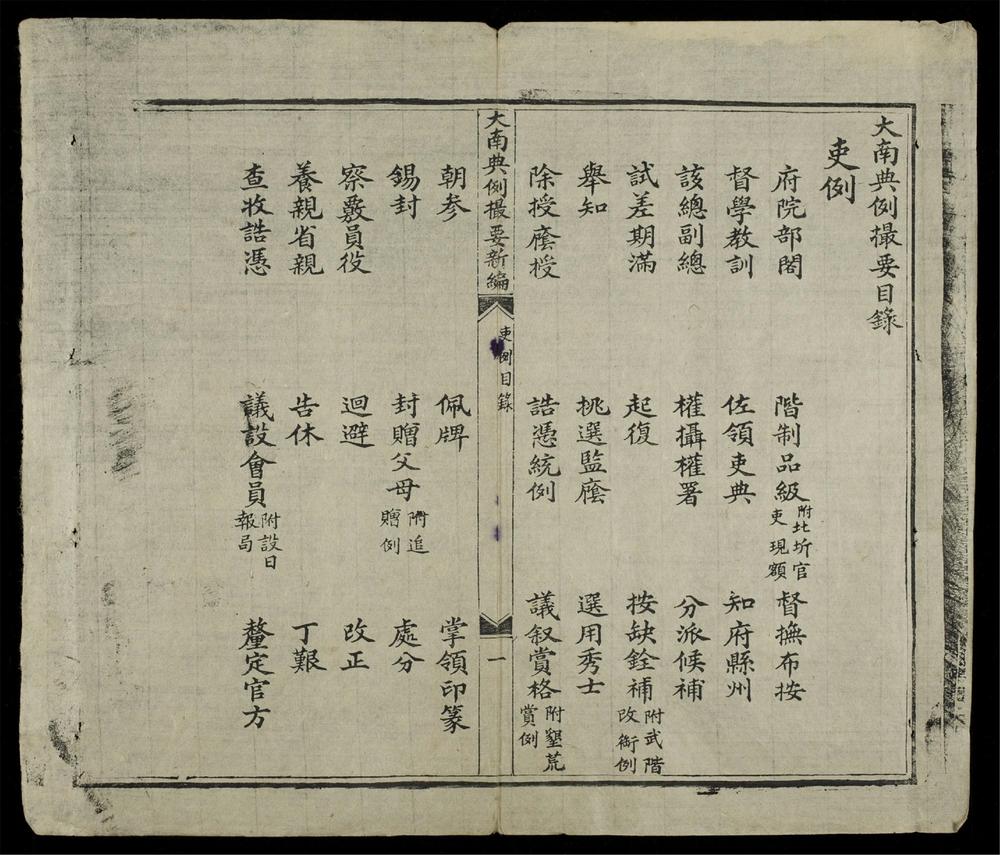 大南典例撮要目錄
吏例
府院部閣 階制品級 附北圻官吏現額 督撫布按
督學教訓 佐領吏典 知府縣州
該總副總 權攝權署 分派候補
試差期滿 起復 按缺銓補 附武階改銜例
舉知 挑選監廕 選用秀士
除授廕授 誥憑統例 議叙賞格 附墾荒賞例
大南典例撮要新編 吏例目錄 一
朝參 佩牌 掌領印篆
錫封 封贈父母 附追贈例 處分
察覈員役 迴避 改正
養親省親 告休 丁艱
查收誥憑 議設會員 附設日報局 釐定官方